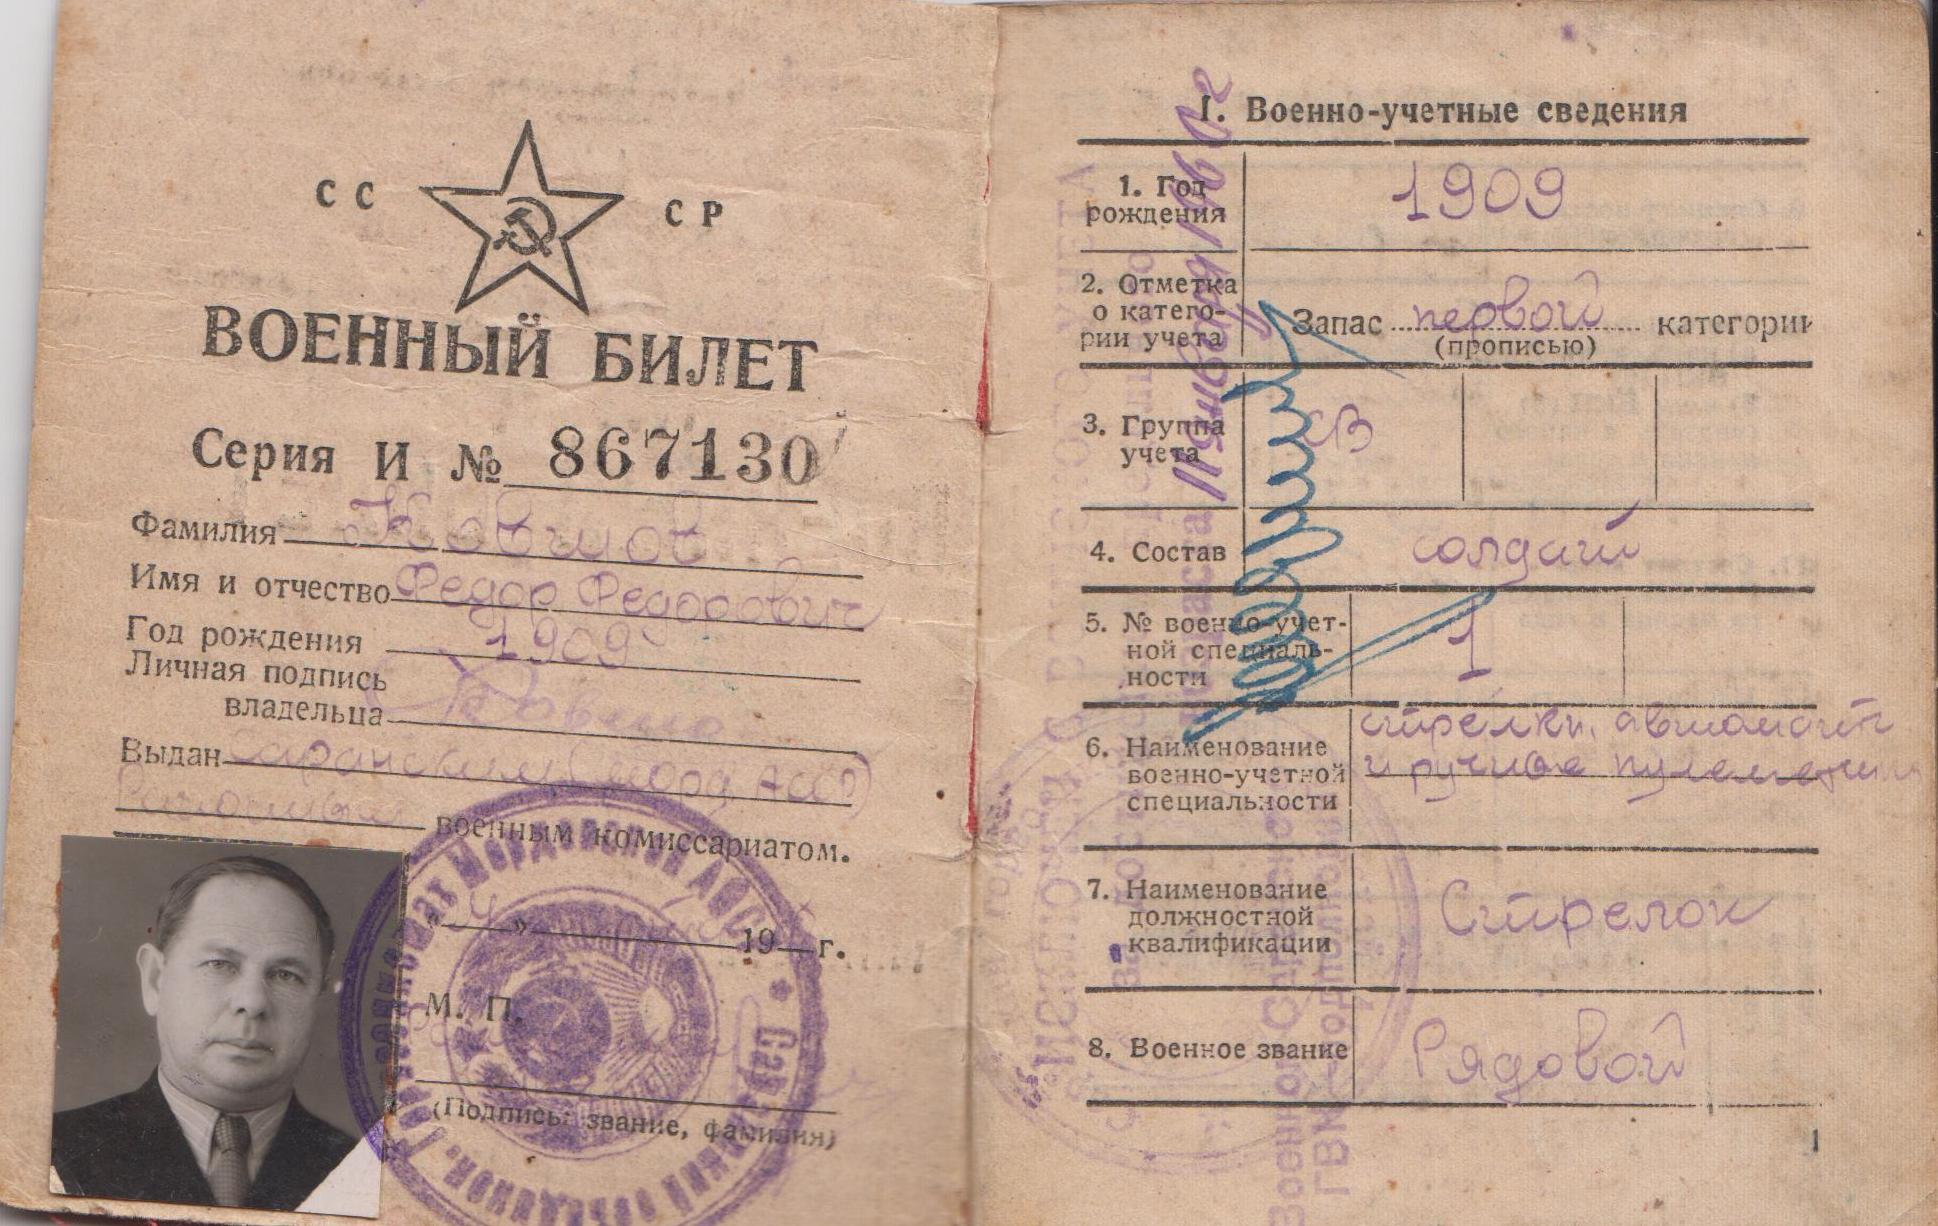 СС СР
ВОЕННЫЙ БИЛЕТ
Серия И № 867130
Фамилия Ковшов
Имя и отчество Федор Федорович
Год рождения 1909
Личная подпись
владельца
Выдан Саранским (Морд. АССР)
Районным военным комиссариатом.
« » 19 г.
М. П.
(Подпись, звание, фамилия)
I. Военно-учетные сведения
1. Год
рождения
1909
2. Отметка
о катего-
рии учета
Запас первой категории
(прописью)
3. Группа
учета
СВ
4. Состав
солдат
5. № военно-учет-
ной специаль-
ности
1
6. Наименование
военно-учетной
специальности
стрелки, автомат
и ручные пулеметчики
7. Наименование
должностной
квалификации
Стрелок
8. Военное звание
Рядовой
1
11 января 1960 г